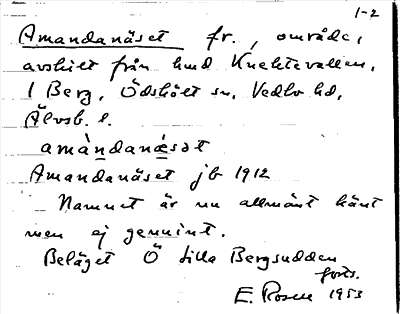 1-2
Amandanäset fr., område,
avskilt från hmd Knektevallen,
1 Berg, Ödskölt sn, Vedbo hd,
Älvsb. l.
amàndanésət
Amandanäset jb 1912
Namnet är nu allmänt känt
men ej genuint.
Beläget Ö Lilla Bergsudden
forts.
E. Rosell 1953